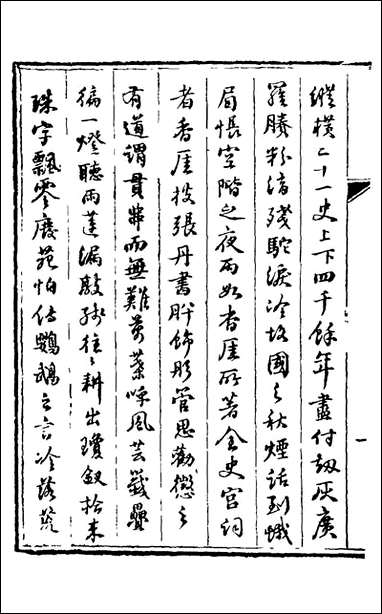 縱橫二十一史上下四千餘年盡付劫灰廣
羅賸粉渚殘駝淚冷故國之秋煙話到蛾
眉悵空階之夜雨如香厓所著全史宮詞
者香厓披張丹書肸飾彤管思勸懲之
有道謂貫串而無難萬葉呼風芸籤疊
徧一燈聽雨蓮漏殷婰往〻耕出瓊釵拾來
珠字飄零廢苑怕傳鸚鵡之言冷落荒